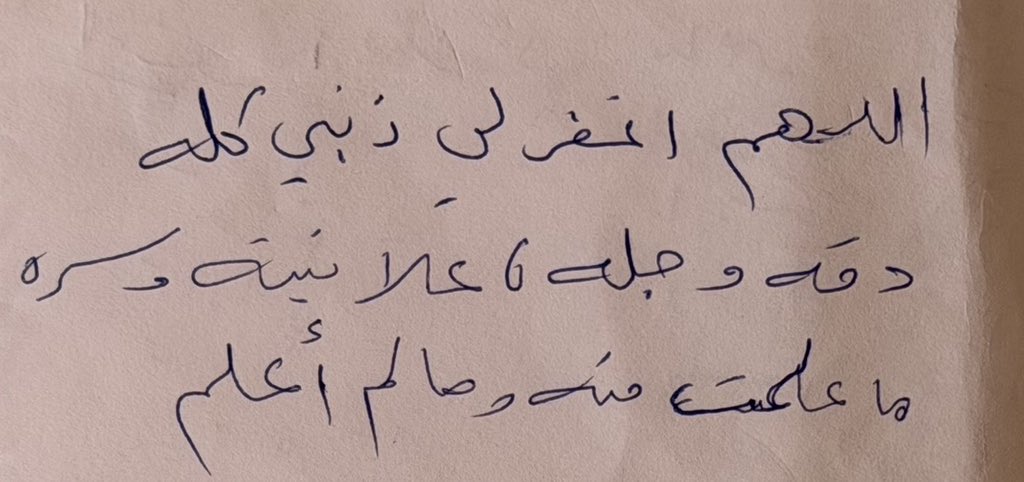 اللهم اغفر لي ذنبي كله
دقه وجله، علانيته وسره
ما علمت منه وما لم أعلم